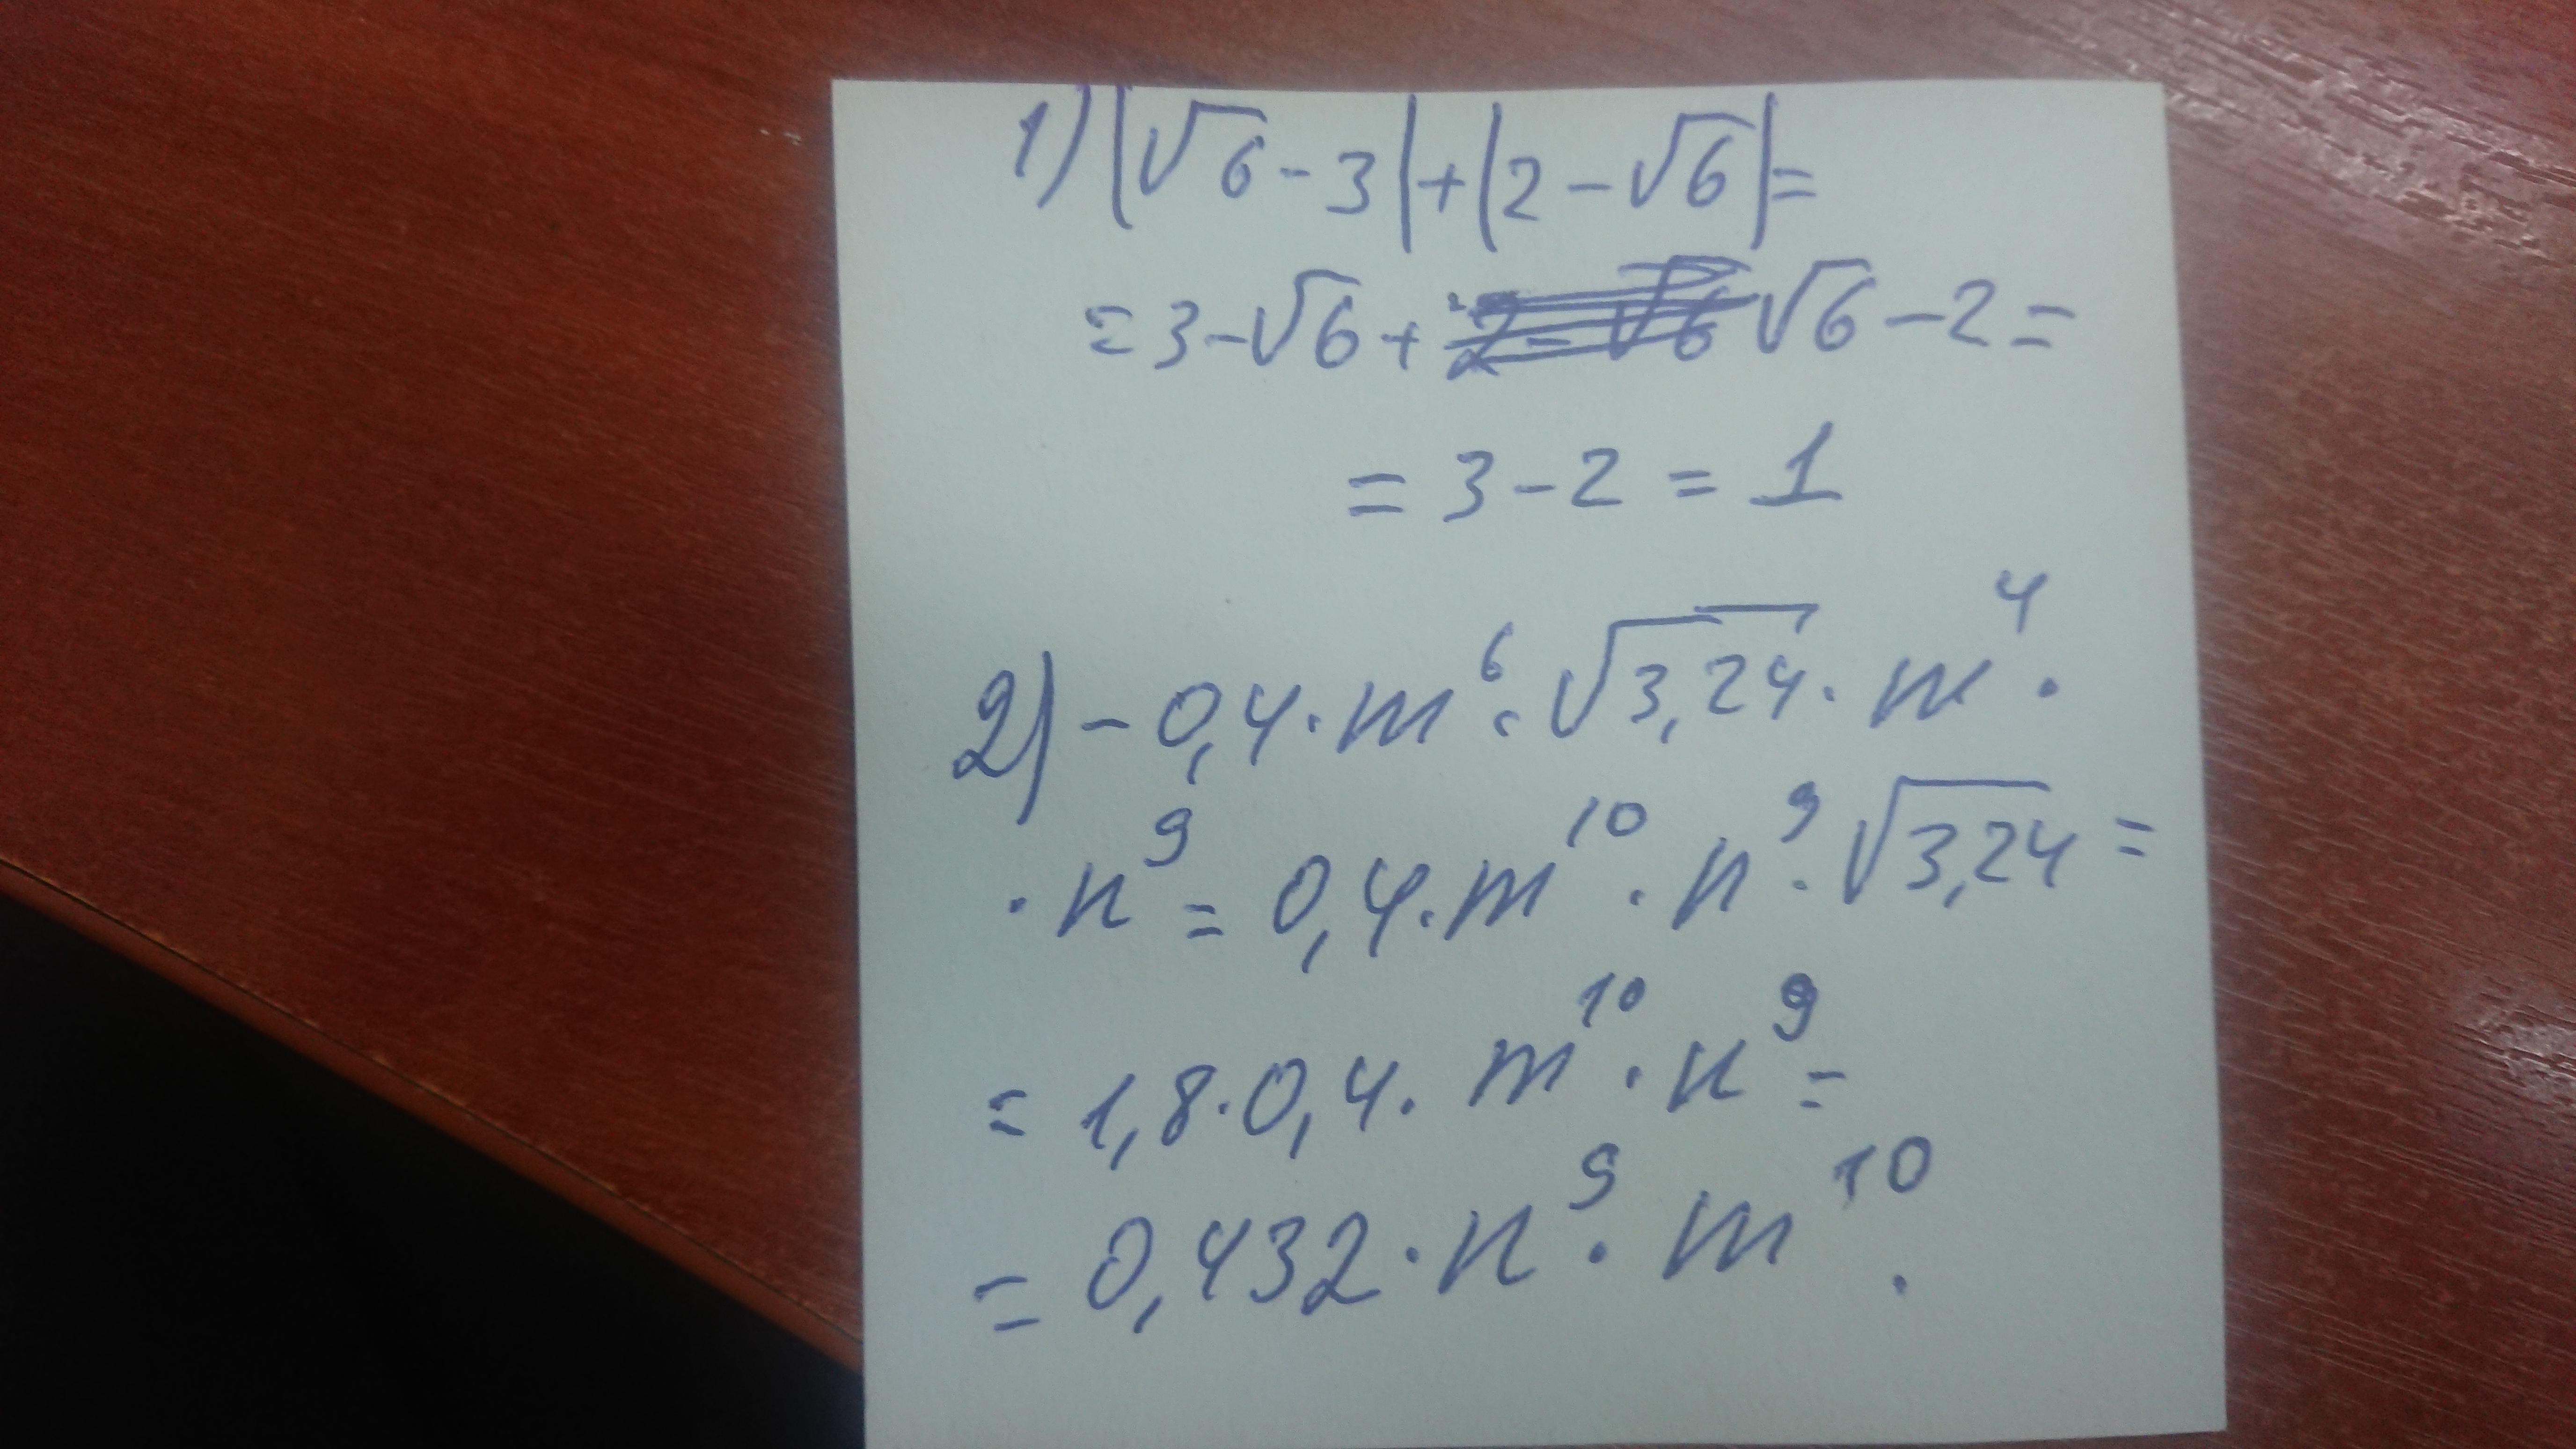 1) |√6 - 3| + |2 - √6| =
= 3 - √6 + √6 - 2 =
= 3 - 2 = 1
2) - 0,4 · m⁶ · √3,24 · m⁴ ·
· n⁹ = 0,4 · m¹⁰ · n⁹ · √3,24 =
= 1,8 · 0,4 · m¹⁰ · n⁹ =
= 0,432 · n⁹ · m¹⁰.